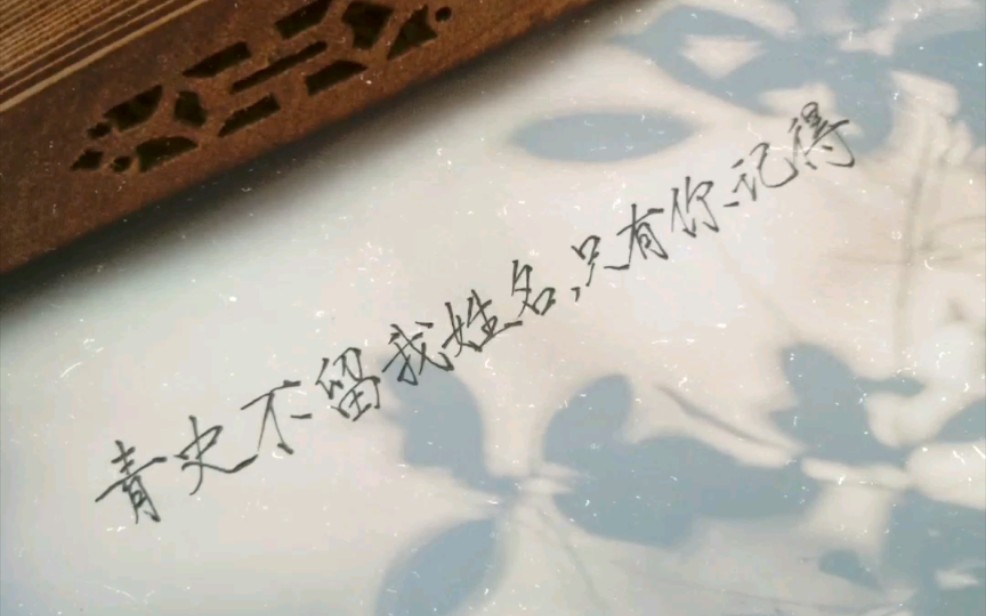 青史不留我姓名,只有你记得